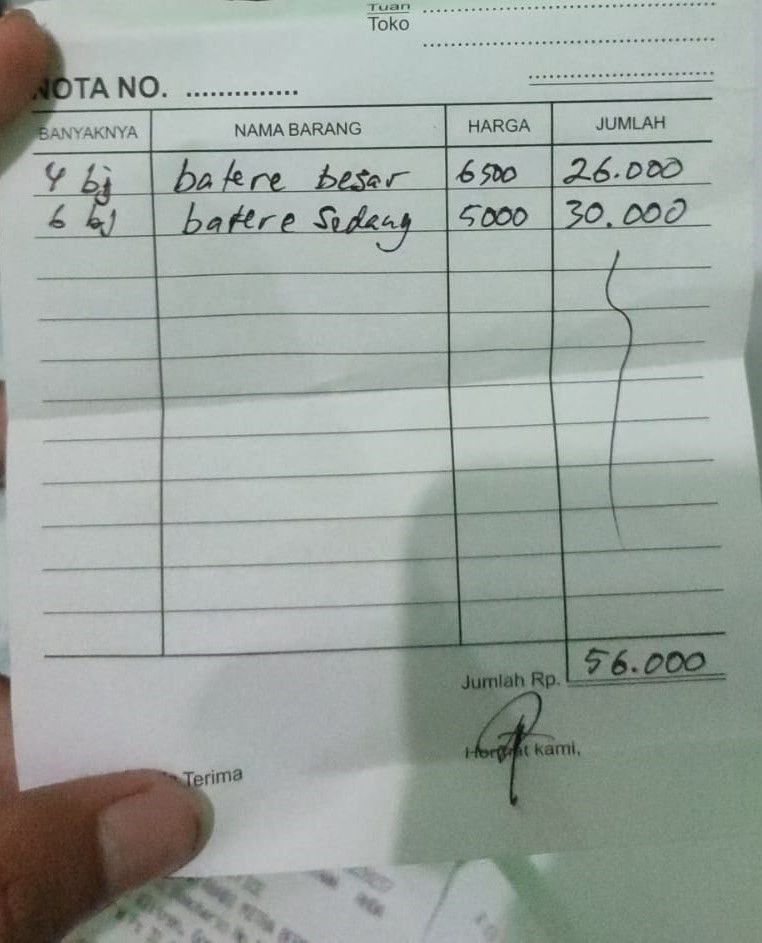 Tuan
Toko ....................
....................
....................
NOTA NO. ..............
BANYAKNYA NAMA BARANG HARGA JUMLAH
4 bj batere besar 6500 26.000
6 bj batere Sedang 5000 30.000
Jumlah Rp. 56.000
Hormat kami,
Terima